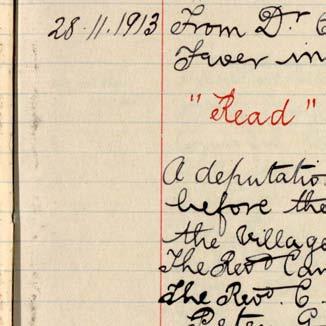 28.11.1913 From Dr
Fever in
"Read"
A deputatio
before the
the Village
The Revd Can
The Revd. C.
Peter G